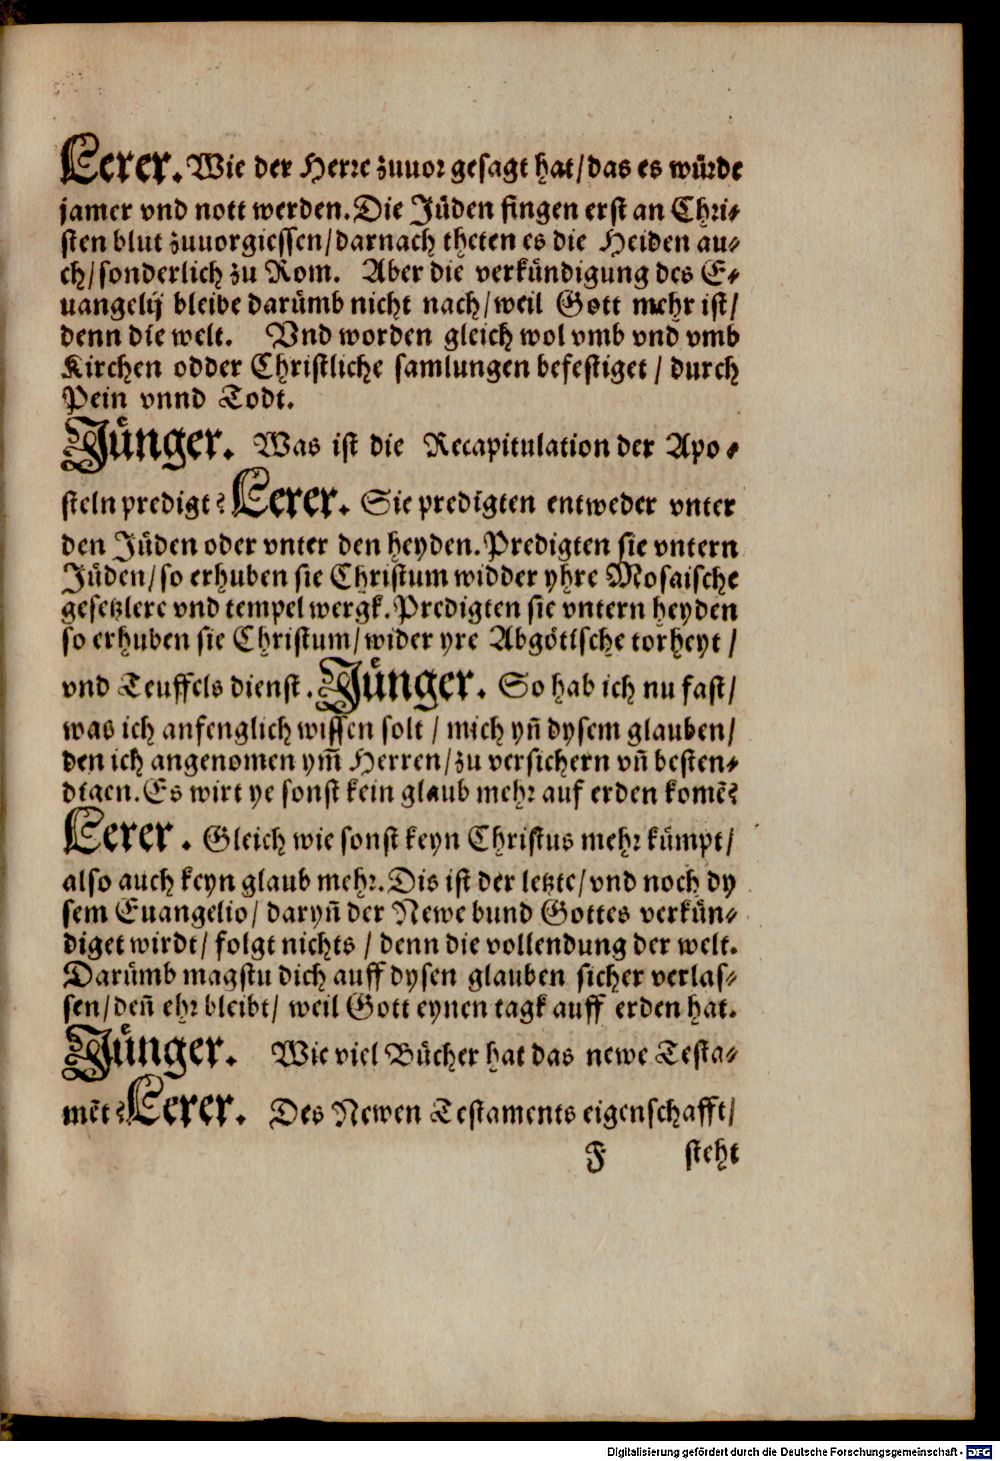 Lerer. Wie der Herre zuuor gesagt hat/das es würde
jamer vnd nott werden. Die Jüden fingen erst an Chri⸗
sten blut zuuorgiessen/darnach theten es die Heiden au⸗
ch/sonderlich zu Rom. Aber die verkündigung des E⸗
uangelij bleibe darümb nicht nach/weil Gott mehr ist/
denn die welt. Vnd worden gleich wol vmb vnd vmb
Kirchen odder Christliche samlungen befestiget / durch
Pein vnnd Todt.
Jünger. Was ist die Recapitulation der Apo⸗
steln predigt? Lerer. Sie predigten entweder vnter
den Jüden oder vnter den heyden. Predigten sie vntern
Jüden/so erhuben sie Christum widder yhre Mosaische
gesetzlere vnd tempel wergk. Predigten sie vntern heyden
so erhuben sie Christum/wider yre Abgöttsche torheyt /
vnd Teuffels dienst. Jünger. So hab ich nu fast/
was ich anfenglich wissen solt / mich yn̄ dysem glauben/
den ich angenomen ym̄ Herren/zu versichern vn̄ besten⸗
digen. Es wirt ye sonst kein glaub mehr auf erden komē?
Lerer. Gleich wie sonst keyn Christus mehr kümpt/
also auch keyn glaub mehr. Dis ist der letzte/vnd noch dy
sem Euangelio/ daryn̄ der Newe bund Gottes verkün⸗
diget wirdt/ folgt nichts / denn die vollendung der welt.
Darümb magstu dich auff dysen glauben sicher verlas⸗
sen/den̄ ehr bleibt/ weil Gott eynen tagk auff erden hat.
Jünger. Wie viel Bücher hat das newe Testa⸗
mēt? Lerer. Des Newen Testaments eigenschafft/
F steht
Digitalisierung gefördert durch die Deutsche Forschungsgemeinschaft - DFG